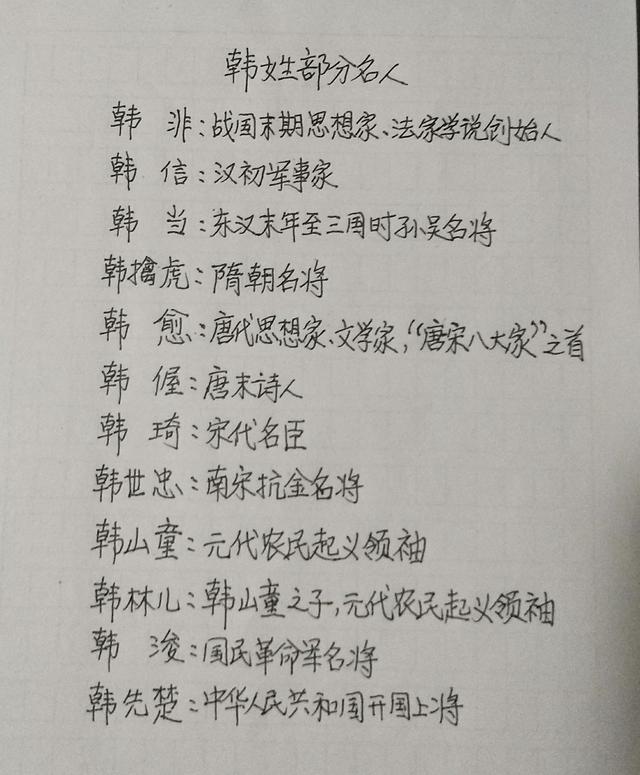 韩姓部分名人
韩 非:战国末期思想家、法家学说创始人
韩 信:汉初军事家
韩 当:东汉末年至三国时孙吴名将
韩擒虎:隋朝名将
韩 愈:唐代思想家、文学家,“唐宋八大家”之首
韩 偓:唐末诗人
韩 琦:宋代名臣
韩世忠:南宋抗金名将
韩山童:元代农民起义领袖
韩林儿:韩山童之子,元代农民起义领袖
韩 浚:国民革命军名将
韩先楚:中华人民共和国开国上将